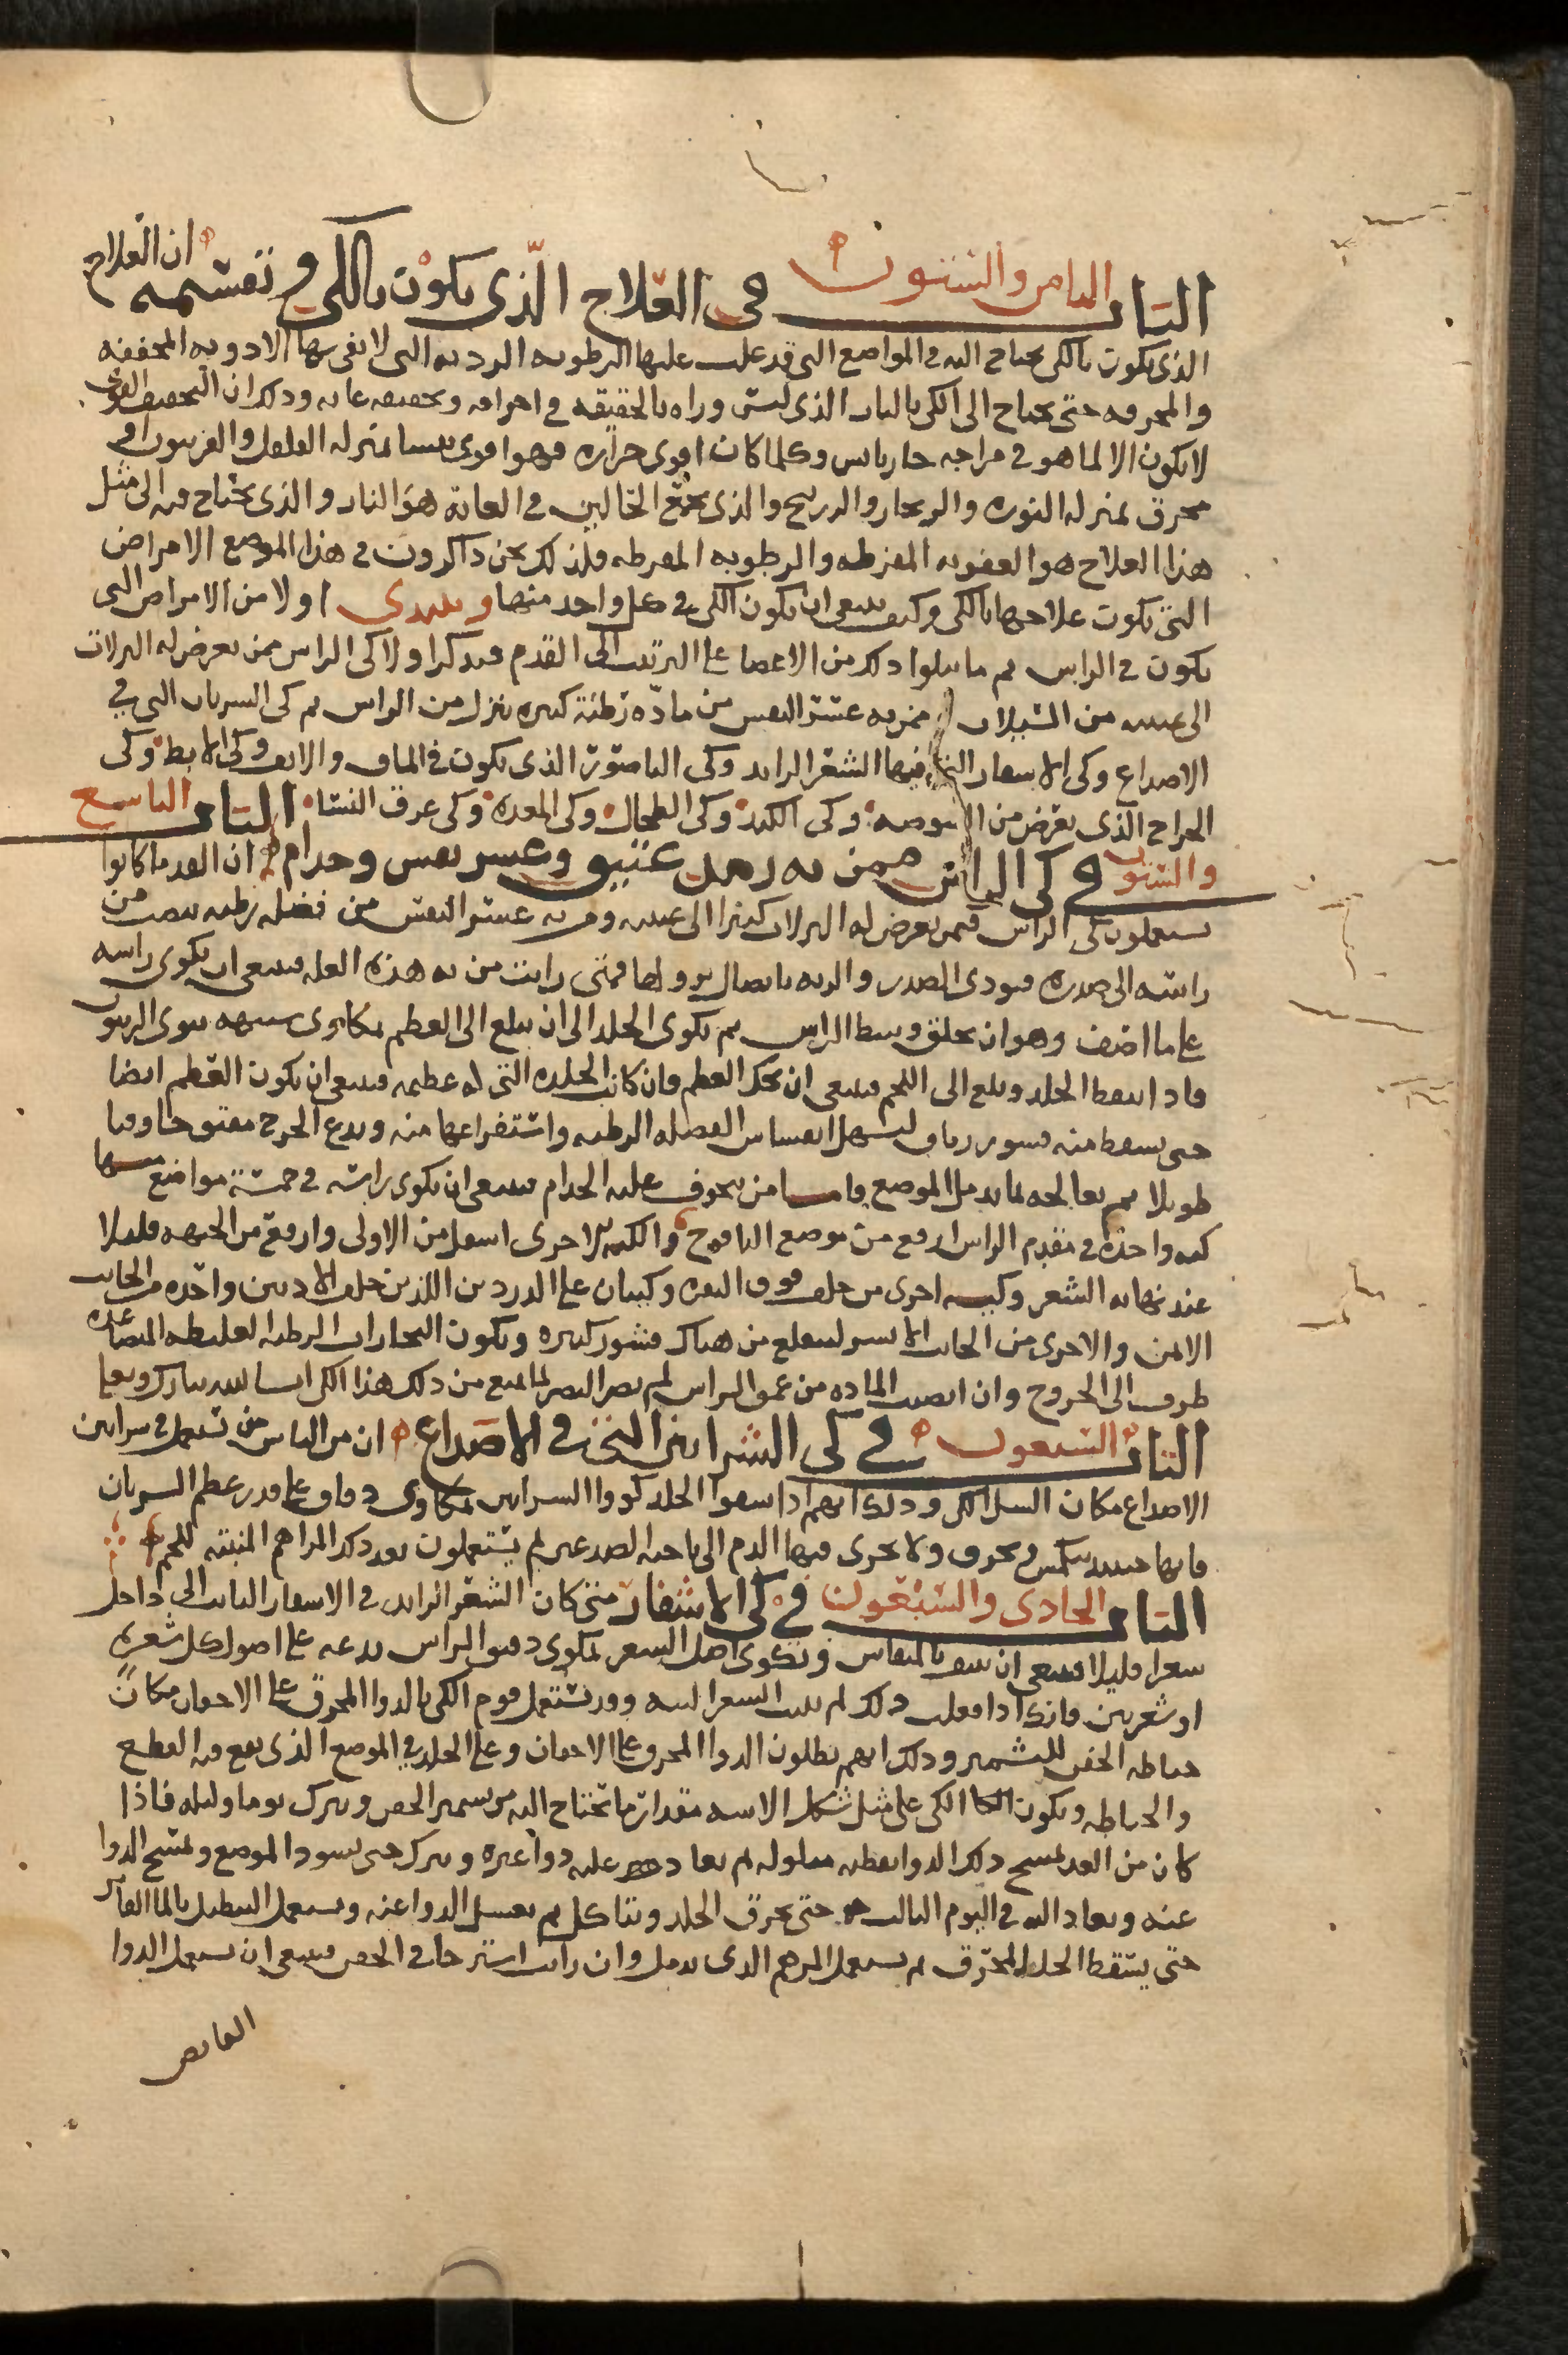 الباب الثامن والستون في العلاج الذي يكون بالكي وتقسيمه ان العلاج
الذي يكون بالكي يحتاج اليه في المواضع التي قد غلب عليها الرطوبه الرديه التي لا يفي بها الادويه المجففه
والمحرقه حتى يحتاج الى الكي بالنار الذي ليس وراه بالحقيقه في احراقه وتجفيفه غايه وذلك ان التجفيف القوي
لا يكون الا لما هو في مزاجه حار يابس وكلما كان اقوى حراره فهو اقوى يبسا بمنزله الفلفل والفربيون او
محرق بمنزله النوره والزنجار والزرنيخ والذي يجمع الحالين في الغاية هو النار والذي يحتاج فيه الى مثل
هذا العلاج هو العفونه المفرطه والرطوبه المفرطه فلذلك نحن ذاكرون في هذا الموضع الامراض
التي يكون علاجها بالكي وكيف ينبغي ان يكون الكي في كل واحد منها ونبتدي اولا من الامراض التي
تكون في الراس ثم ما يتلوا ذلك من الاعضا على الترتيب الى القدم فنذكر اولا كي الراس ممن يعرض له النزلات
الى عينيه من السيلان ممن به عسر النفس من مادة رطبة كثيره تنزل من الراس ثم كي الشريان التي في
الاصداغ وكي الاشفار التي فيها الشعر الزايد وكي الناصور الذي يكون في الماق والانف وكي الابط وكي
الخراج الذي يعرض من الشوصه وكي الكبد وكي الطحال وكي المعده وكي عرق النسا الباب التاسع
والستون في كي الراس ممن به رمد عتيق وعسر نفس وجدام ان القدما كانوا
يستعملون كي الراس فيمن يعرض له النزلات كثيرا الى عينيه ومن به عسر النفس من فضله رطبه تنصب من
راسه الى صدره فيودي الصدر والريه باتصال نزولها فمتى رايت من به هذه العله فينبغي ان يكوى راسه
على ما اصف وهو ان يحلق وسط الراس ثم يكوى الجلد الى ان يبلغ الى العظم بمكاوى شبيهه بنوى الزيتون
فاذا سقط الجلد وبلغ الى اللحم فينبغي ان يحك العظم فان كانت الجلده التي له عظيمه فينبغي ان يكون العظم ايضا
حتى يسقط منه قشور رقاق ليسهل انفشاش الفضله الرطبه واستفراغها منه ويدع الجرح مفتوحا وقتا
طويلا ثم يعالجه بما يدمل الموضع فاما من يخوف عليه الجدام فينبغي ان يكوى راسه في خمسة مواضع منها
كيه واحده في مقدم الراس ارفع من موضع اليافوخ والكيه الاخرى اسفل من الاولى وارفع من الجبهه قليلا
عند نهايه الشعر وكيه اخرى من خلف فوق النقره وكيتان على الدردين اللذين خلف الاذنين واحده من الجانب
الايمن والاخرى من الجانب الايسر لينقلع من هناك قشور كثيره ويكون البخارات الرطبه الغليظه المتصاعده
طرف الى الخروج وان انصبت الماده من عمق الراس لم يضر البصر لما يمنع من ذلك هذا الكي ان شا الله تبارك وتعالى
الباب السبعون في كي الشرايين التي في الاصداغ ان من الناس من يستعمل في شرايين
الاصداغ مكان السل الكي وذلك انهم اذا شقوا الجلد كووا الشرايين بمكاوى دقاق على قدر عظم الشريان
فانها حينيد تنكمش وتحرق ولا يجرى فيها الدم الى ناحيه الصدغين ثم يستعملون بعد ذلك المراهم المنبته للحم
الباب الحادي والسبعون في كي الاشفار متى كان الشعر الزايد في الاشفار النابت الى داخل
شعرا قليلا فينبغي ان ينتف بالمنقاش ويكوى اصل الشعر بمكوى دقيق الراس يدعه على اصول كل شعره
او شعرتين فانك اذا فعلت ذلك لم ينبت الشعر البته وقد يستعمل قوم الكي بالدوا المحرق على الاجفان مكان
خياطه الجفن للتشمير وذلك انهم يطلون الدوا المحرق على الاجفان وعلى الجلد في الموضع الذي يقع فيه القطع
والخياطه ويكون الكي على مثل شكل الاسه مقدار ما يحتاج اليه من تشمير الجفن ويترك يوما وليله فاذا
كان من الغد يمسح ذلك الدوا بقطنه مبلوله ثم يعاد عليه دوا غيره ويترك حتى يسود الموضع ويمسح الدوا
عنه ويعاد اليه في اليوم الثالث حتى يحرق الجلد ويتاكل ثم يغسل الدوا عنه ويستعمل التنطيل بالما الفاتر
حتى يسقط الجلد المحرق ثم يستعمل المرهم الذي يدمل وان رايت استرخا في الجفن فينبغي ان يستعمل الدوا
القابض